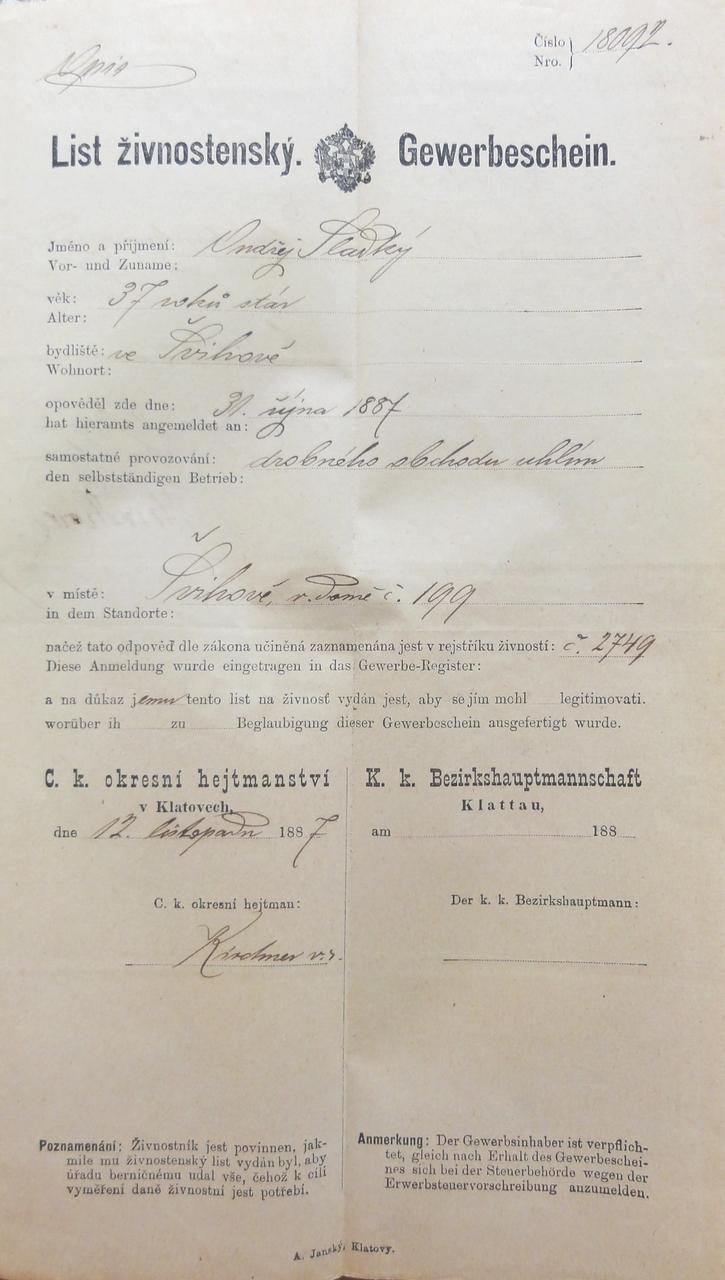 Opis
Číslo } 18092.
Nro.
List živnostenský. Gewerbeschein.
Jméno a příjmení: Ondřej Sladký
Vor- und Zuname:
věk: 37 roků stár
Alter:
bydliště: ve Švihově
Wohnort:
opověděl zde dne: 31. října 1887
hat hieramts angemeldet an:
samostatné provozování: drobného obchodu uhlím
den selbstständigen Betrieb:
v místě: Švihově, v domě č. 199
in dem Standorte:
načež tato odpověď dle zákona učiněná zaznamenána jest v rejstříku živností: č. 2749
Diese Anmeldung wurde eingetragen in das Gewerbe-Register:
a na důkaz jemu tento list na živnosť vydán jest, aby se jím mohl legitimovati.
worüber ih zu Beglaubigung dieser Gewerbeschein ausgefertigt wurde.
C. k. okresní hejtmanství
v Klatovech,
dne 12. listopadu 1887
C. k. okresní hejtman:
Kirchner v. r.
K. k. Bezirkshauptmannschaft
Klattau,
am 188
Der k. k. Bezirkshauptmann:
Poznamenání: Živnostník jest povinnen, jak-
mile mu živnostenský list vydán byl, aby
úřadu berničnému udal vše, čehož k cíli
vyměření daně živnostní jest potřebí.
Anmerkung: Der Gewerbsinhaber ist verpflich-
tet, gleich nach Erhalt des Gewerbeschei-
nes sich bei der Steuerbehörde wegen der
Erwerbsteuervorschreibung anzumelden.
A. Janský, Klatovy.